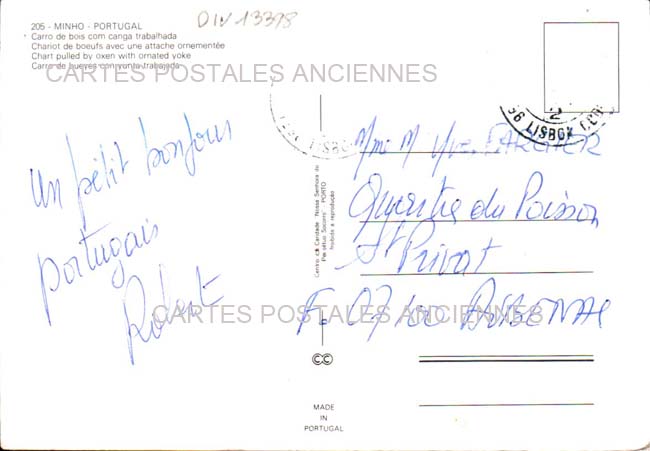 DIV 13398
205 - MINHO - PORTUGAL
Carro de bois com canga trabalhada
Chariot de boeufs avec une attache ornementée
Chart pulled by oxen with ornated yoke
Carro de bueyes con yunta trabajada
CARTES POSTALES ANCIENNES
un petit bonjour
portugais
Robert
Centro de Caridade "Nossa Senhora do
Perpétuo Socorro" - PORTO
Proibida a reprodução
MADE
IN
PORTUGAL
LISBOA
Mme M FARGIER
Quartier du Poisson
St Privat
F. 07100 AUBENAS
CARTES POSTALES ANCIENNES